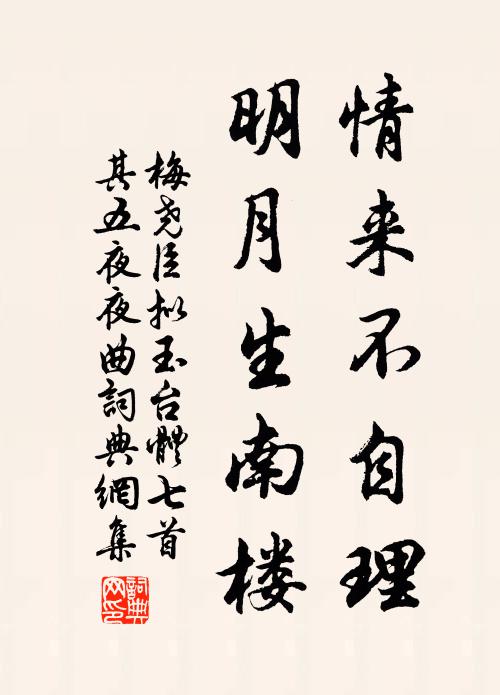 情来不自理
明月生南楼
梅尧臣拟玉台體七首
其五夜夜曲詞典網集
詞典
网印